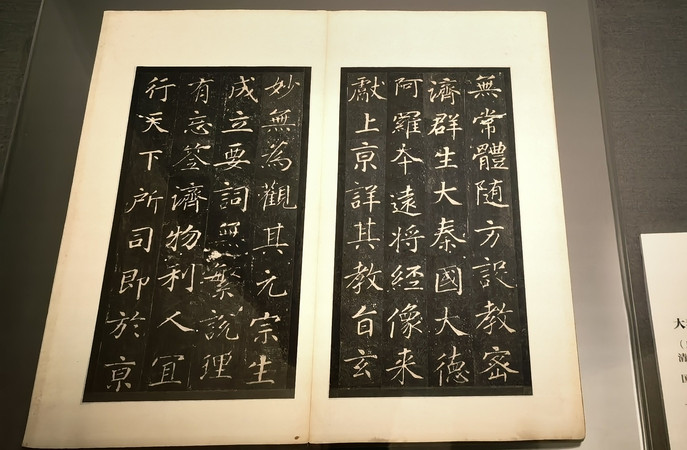 無常體随方設教密
濟群生大秦國大德
阿羅夲遠將經像来
獻上京詳其教旨玄
妙無為觀其元宗生
成立要詞無繁說理
有忘筌濟物利人冝
行天下所司即於京
大